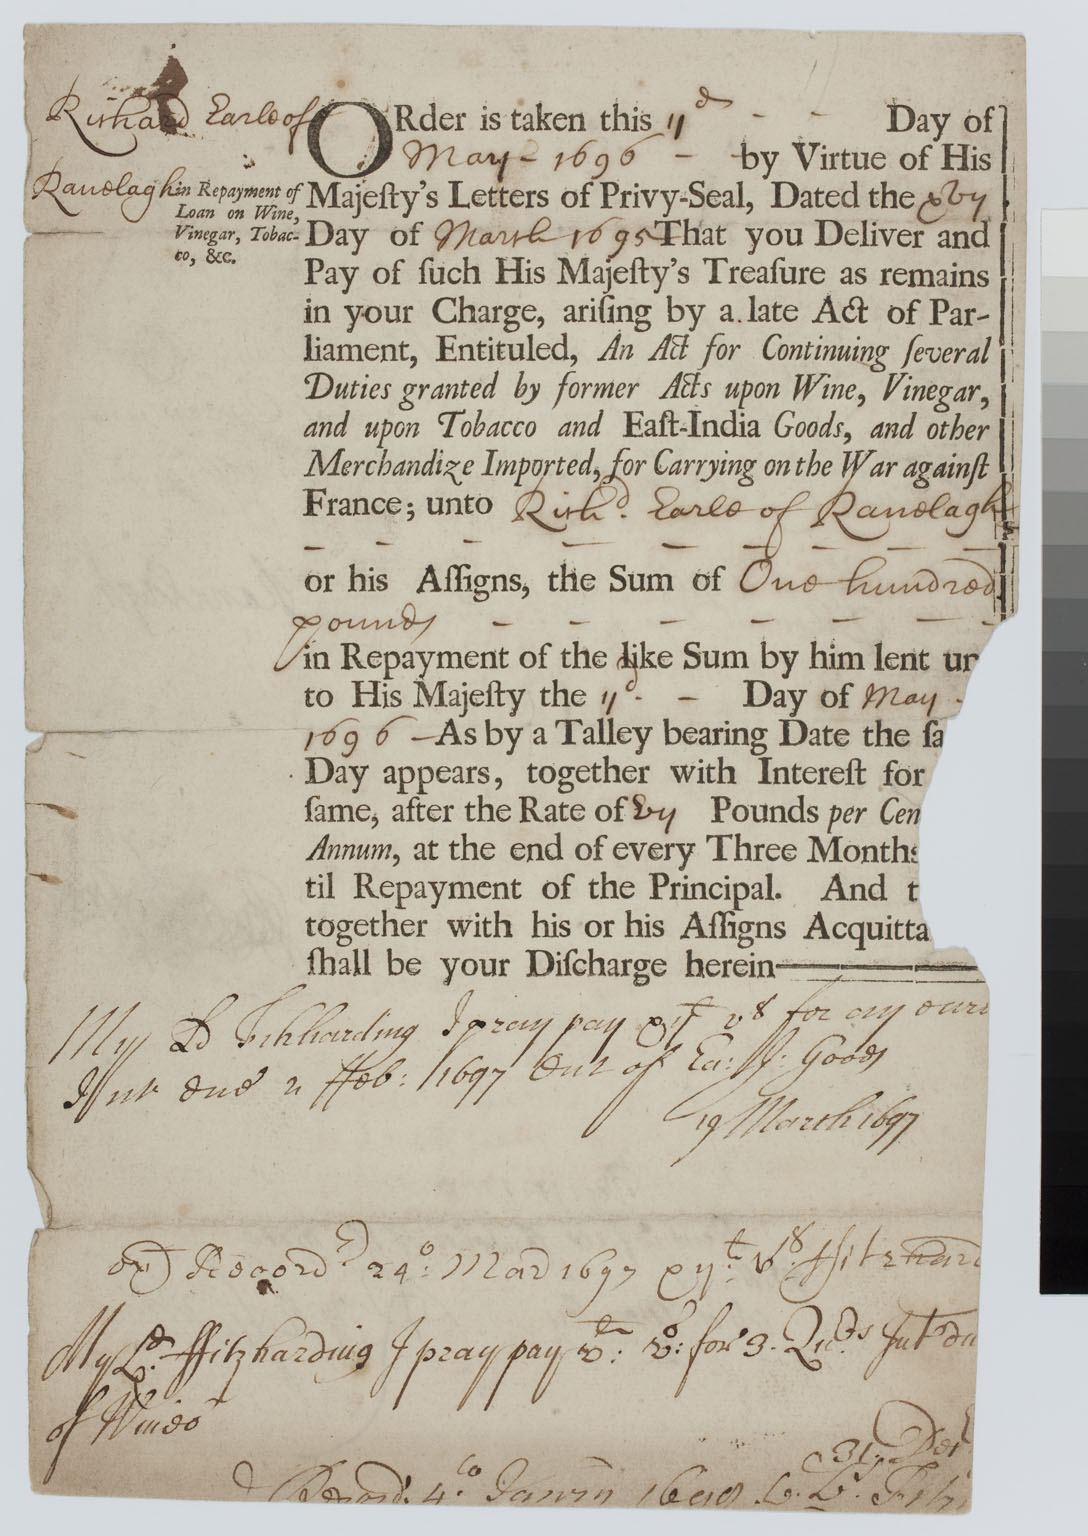 Richard Earle of
Ranelagh in Repayment of
Loan on Wine,
Vinegar, Tobac-
co, &c.
ORder is taken this ijd - - Day of
May - 1696 - by Virtue of His
Majeſty's Letters of Privy-Seal, Dated the xvij
Day of March 1695 That you Deliver and
Pay of ſuch His Majeſty's Treaſure as remains
in your Charge, ariſing by a late Act of Par-
liament, Entituled, An Act for Continuing ſeveral
Duties granted by former Acts upon Wine, Vinegar,
and upon Tobacco and Eaſt-India Goods, and other
Merchandize Imported, for Carrying on the War againſt
France; unto Richd. Earle of Ranelagh
or his Aſſigns, the Sum of One hundred
pounds
in Repayment of the like Sum by him lent un
to His Majeſty the ijd. - Day of May -
1696 - As by a Talley bearing Date the ſa
Day appears, together with Intereſt for
ſame, after the Rate of Pounds per Cen
Annum, at the end of every Three Months
til Repayment of the Principal. And t
together with his or his Aſſigns Acquitta
ſhall be your Diſcharge herein
My Ld Fitzharding I pray pay for
Int due 2 ffeb: 1697 Out of Ea: J: Goods
19 March 1697
Record 24o: Mar 1697 ffitzhard
My Ld. ffitzharding I pray pay for 3. Int du
of Wines
31: Dec
4to 1698 Fitz